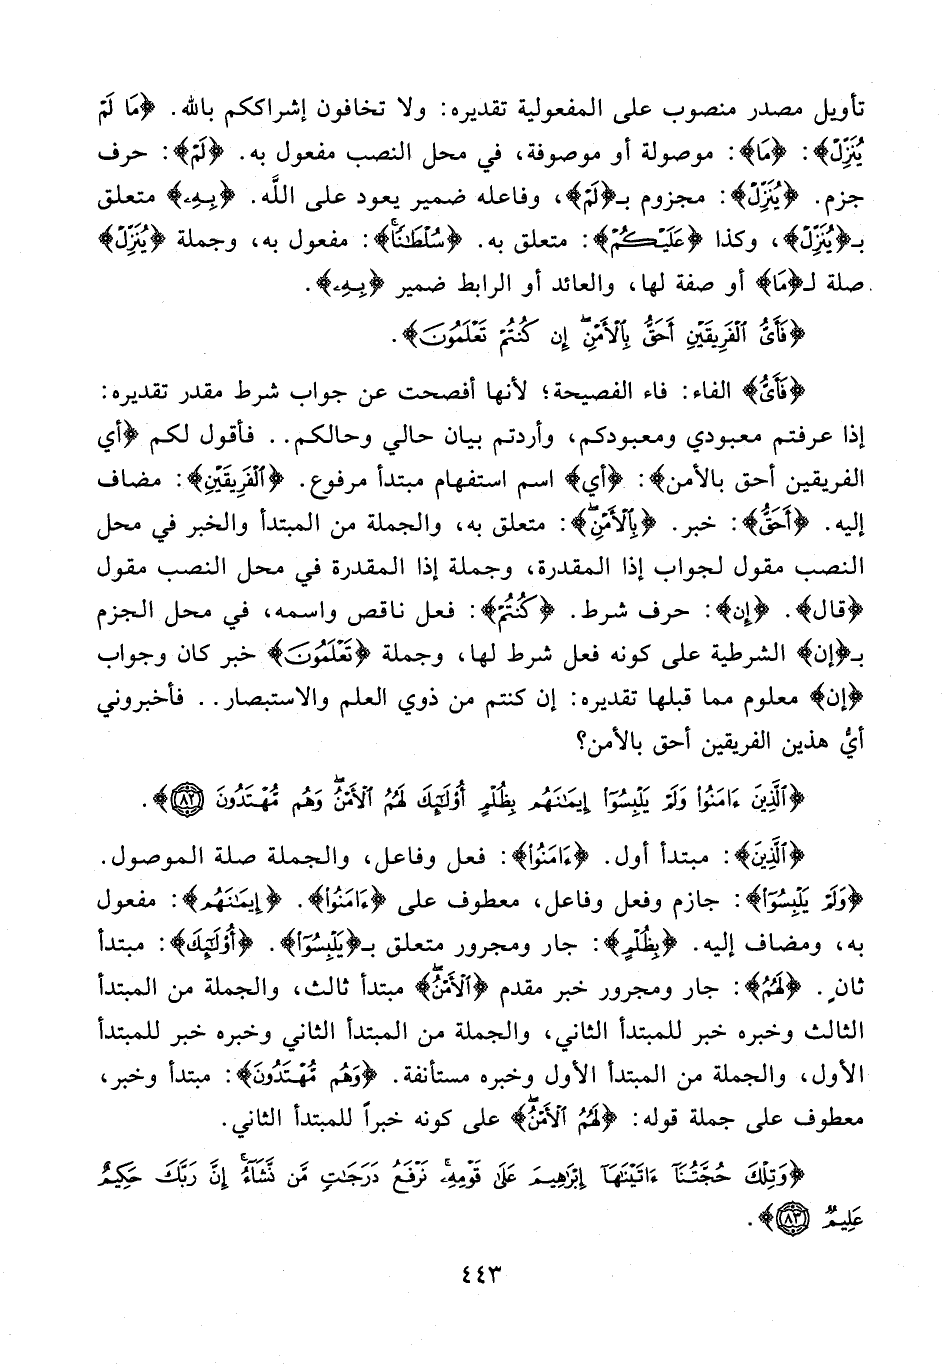 تأويل مصدر منصوب على المفعولية تقديره: ولا تخافون إشراككم بالله. ﴿مَا لَمْ
يُنَزِّلْ﴾: ﴿مَا﴾: موصولة أو موصوفة، في محل النصب مفعول به. ﴿لَمْ﴾: حرف
جزم. ﴿يُنَزِّلْ﴾: مجزوم بـ﴿لَمْ﴾، وفاعله ضمير يعود على اللَّه. ﴿بِهِۦ﴾ متعلق
بـ﴿يُنَزِّلْ﴾، وكذا ﴿عَلَيْكُمْ﴾: متعلق به. ﴿سُلْطَٰنًا﴾: مفعول به، وجملة ﴿يُنَزِّلْ﴾
صلة لـ﴿مَا﴾ أو صفة لها، والعائد أو الرابط ضمير ﴿بِهِۦ﴾.
﴿فَأَىُّ ٱلْفَرِيقَيْنِ أَحَقُّ بِٱلْأَمْنِ ۖ إِن كُنتُمْ تَعْلَمُونَ﴾.
﴿فَأَىُّ﴾ الفاء: فاء الفصيحة؛ لأنها أفصحت عن جواب شرط مقدر تقديره:
إذا عرفتم معبودي ومعبودكم، وأردتم بيان حالي وحالكم.. فأقول لكم ﴿أي
الفريقين أحق بالأمن﴾: ﴿أي﴾ اسم استفهام مبتدأ مرفوع. ﴿ٱلْفَرِيقَيْنِ﴾: مضاف
إليه. ﴿أَحَقُّ﴾: خبر. ﴿بِٱلْأَمْنِ ۖ﴾: متعلق به، والجملة من المبتدأ والخبر في محل
النصب مقول لجواب إذا المقدرة، وجملة إذا المقدرة في محل النصب مقول
﴿قال﴾. ﴿إِن﴾: حرف شرط. ﴿كُنتُمْ﴾: فعل ناقص واسمه، في محل الجزم
بـ﴿إن﴾ الشرطية على كونه فعل شرط لها، وجملة ﴿تَعْلَمُونَ﴾ خبر كان وجواب
﴿إن﴾ معلوم مما قبلها تقديره: إن كنتم من ذوي العلم والاستبصار.. فأخبروني
أيُّ هذين الفريقين أحق بالأمن؟
﴿ٱلَّذِينَ ءَامَنُوا۟ وَلَمْ يَلْبِسُوٓا۟ إِيمَٰنَهُم بِظُلْمٍ أُو۟لَٰٓئِكَ لَهُمُ ٱلْأَمْنُ ۖ وَهُم مُّهْتَدُونَ ٨٢﴾.
﴿ٱلَّذِينَ﴾: مبتدأ أول. ﴿ءَامَنُوا۟﴾: فعل وفاعل، والجملة صلة الموصول.
﴿وَلَمْ يَلْبِسُوٓا۟﴾: جازم وفعل وفاعل، معطوف على ﴿ءَامَنُوا۟﴾. ﴿إِيمَٰنَهُم﴾: مفعول
به، ومضاف إليه. ﴿بِظُلْمٍ﴾: جار ومجرور متعلق بـ﴿يَلْبِسُوٓا۟﴾. ﴿أُو۟لَٰٓئِكَ﴾: مبتدأ
ثانٍ. ﴿لَهُمُ﴾: جار ومجرور خبر مقدم ﴿ٱلْأَمْنُ ۖ﴾ مبتدأ ثالث، والجملة من المبتدأ
الثالث وخبره خبر للمبتدأ الثاني، والجملة من المبتدأ الثاني وخبره خبر للمبتدأ
الأول، والجملة من المبتدأ الأول وخبره مستأنفة. ﴿وَهُم مُّهْتَدُونَ﴾: مبتدأ وخبر،
معطوف على جملة قوله: ﴿لَهُمُ ٱلْأَمْنُ ۖ﴾ على كونه خبراً للمبتدأ الثاني.
﴿وَتِلْكَ حُجَّتُنَآ ءَاتَيْنَٰهَآ إِبْرَٰهِيمَ عَلَىٰ قَوْمِهِۦ ۚ نَرْفَعُ دَرَجَٰتٍ مَّن نَّشَآءُ ۗ إِنَّ رَبَّكَ حَكِيمٌ
عَلِيمٌ ٨٣﴾.
٤٤٣